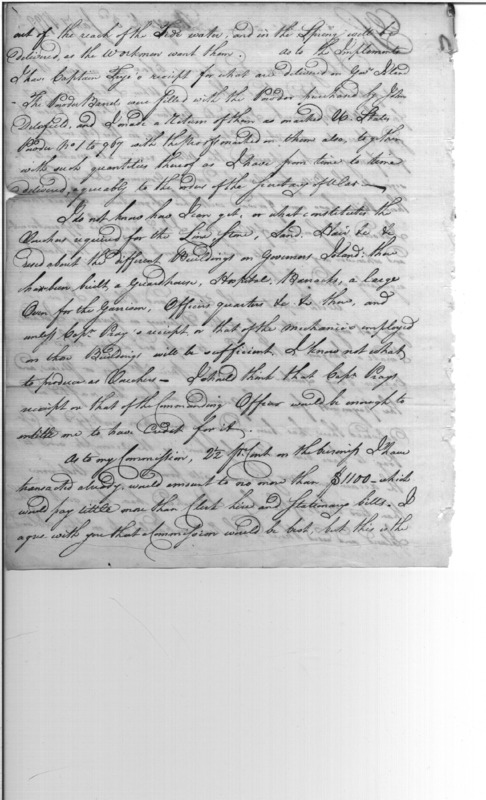 out of the reach of the Tide water, and in the Spring will be
delivered, as the Workmen want them. As to the Implements
I have Captain Frye's receipt for what are delivered on Gov Island
The Powder Barrels were filled with the Powder purchased by John
Delafield, and I made a Return of them as marked U. States
Powder No 1 to 967 with the Nos marked on them also, together
with such quantities thereof as I have from time to time
delivered, agreeably to the orders of the Secretary of War —
I do not know how I can get, or what constitutes the
Voucher required for the Lime, Stone, Sand, Hair &c &c
used about the different Buildings on Governors Island: there
has been built, a Guardhouse, Hospital, Barracks, a large
Oven for the Garrison, Officers quarters &c &c there, and
unless Capn Frye's receipt or that of the Mechanics employed
on those Buildings will be sufficient, I know not what
to produce as Vouchers — I should think that Capn Frye's
receipt or that of the Commanding Officer would be enough to
entitle me to have Credit for it.
As to my Commission, 2½ pr Cent on the business I have
transacted already would amount to no more than $1100 — which
would pay little more than Clerk hire and Stationary bills. I
agree with you that a Commission would be best, but this is the